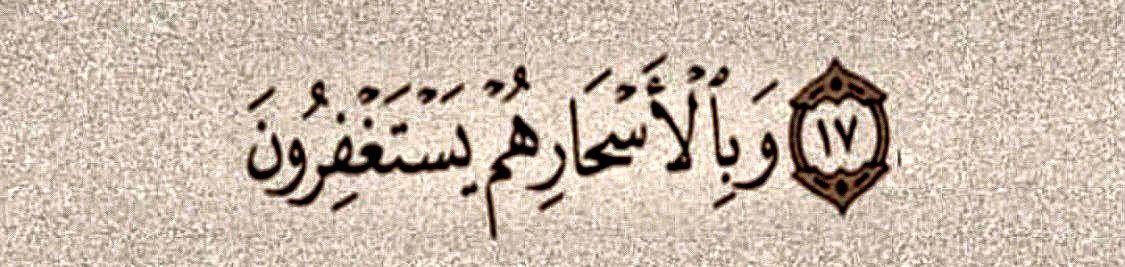 ١٧ وَبِٱلْأَسْحَارِهُمْ يَسْتَغْفِرُونَ